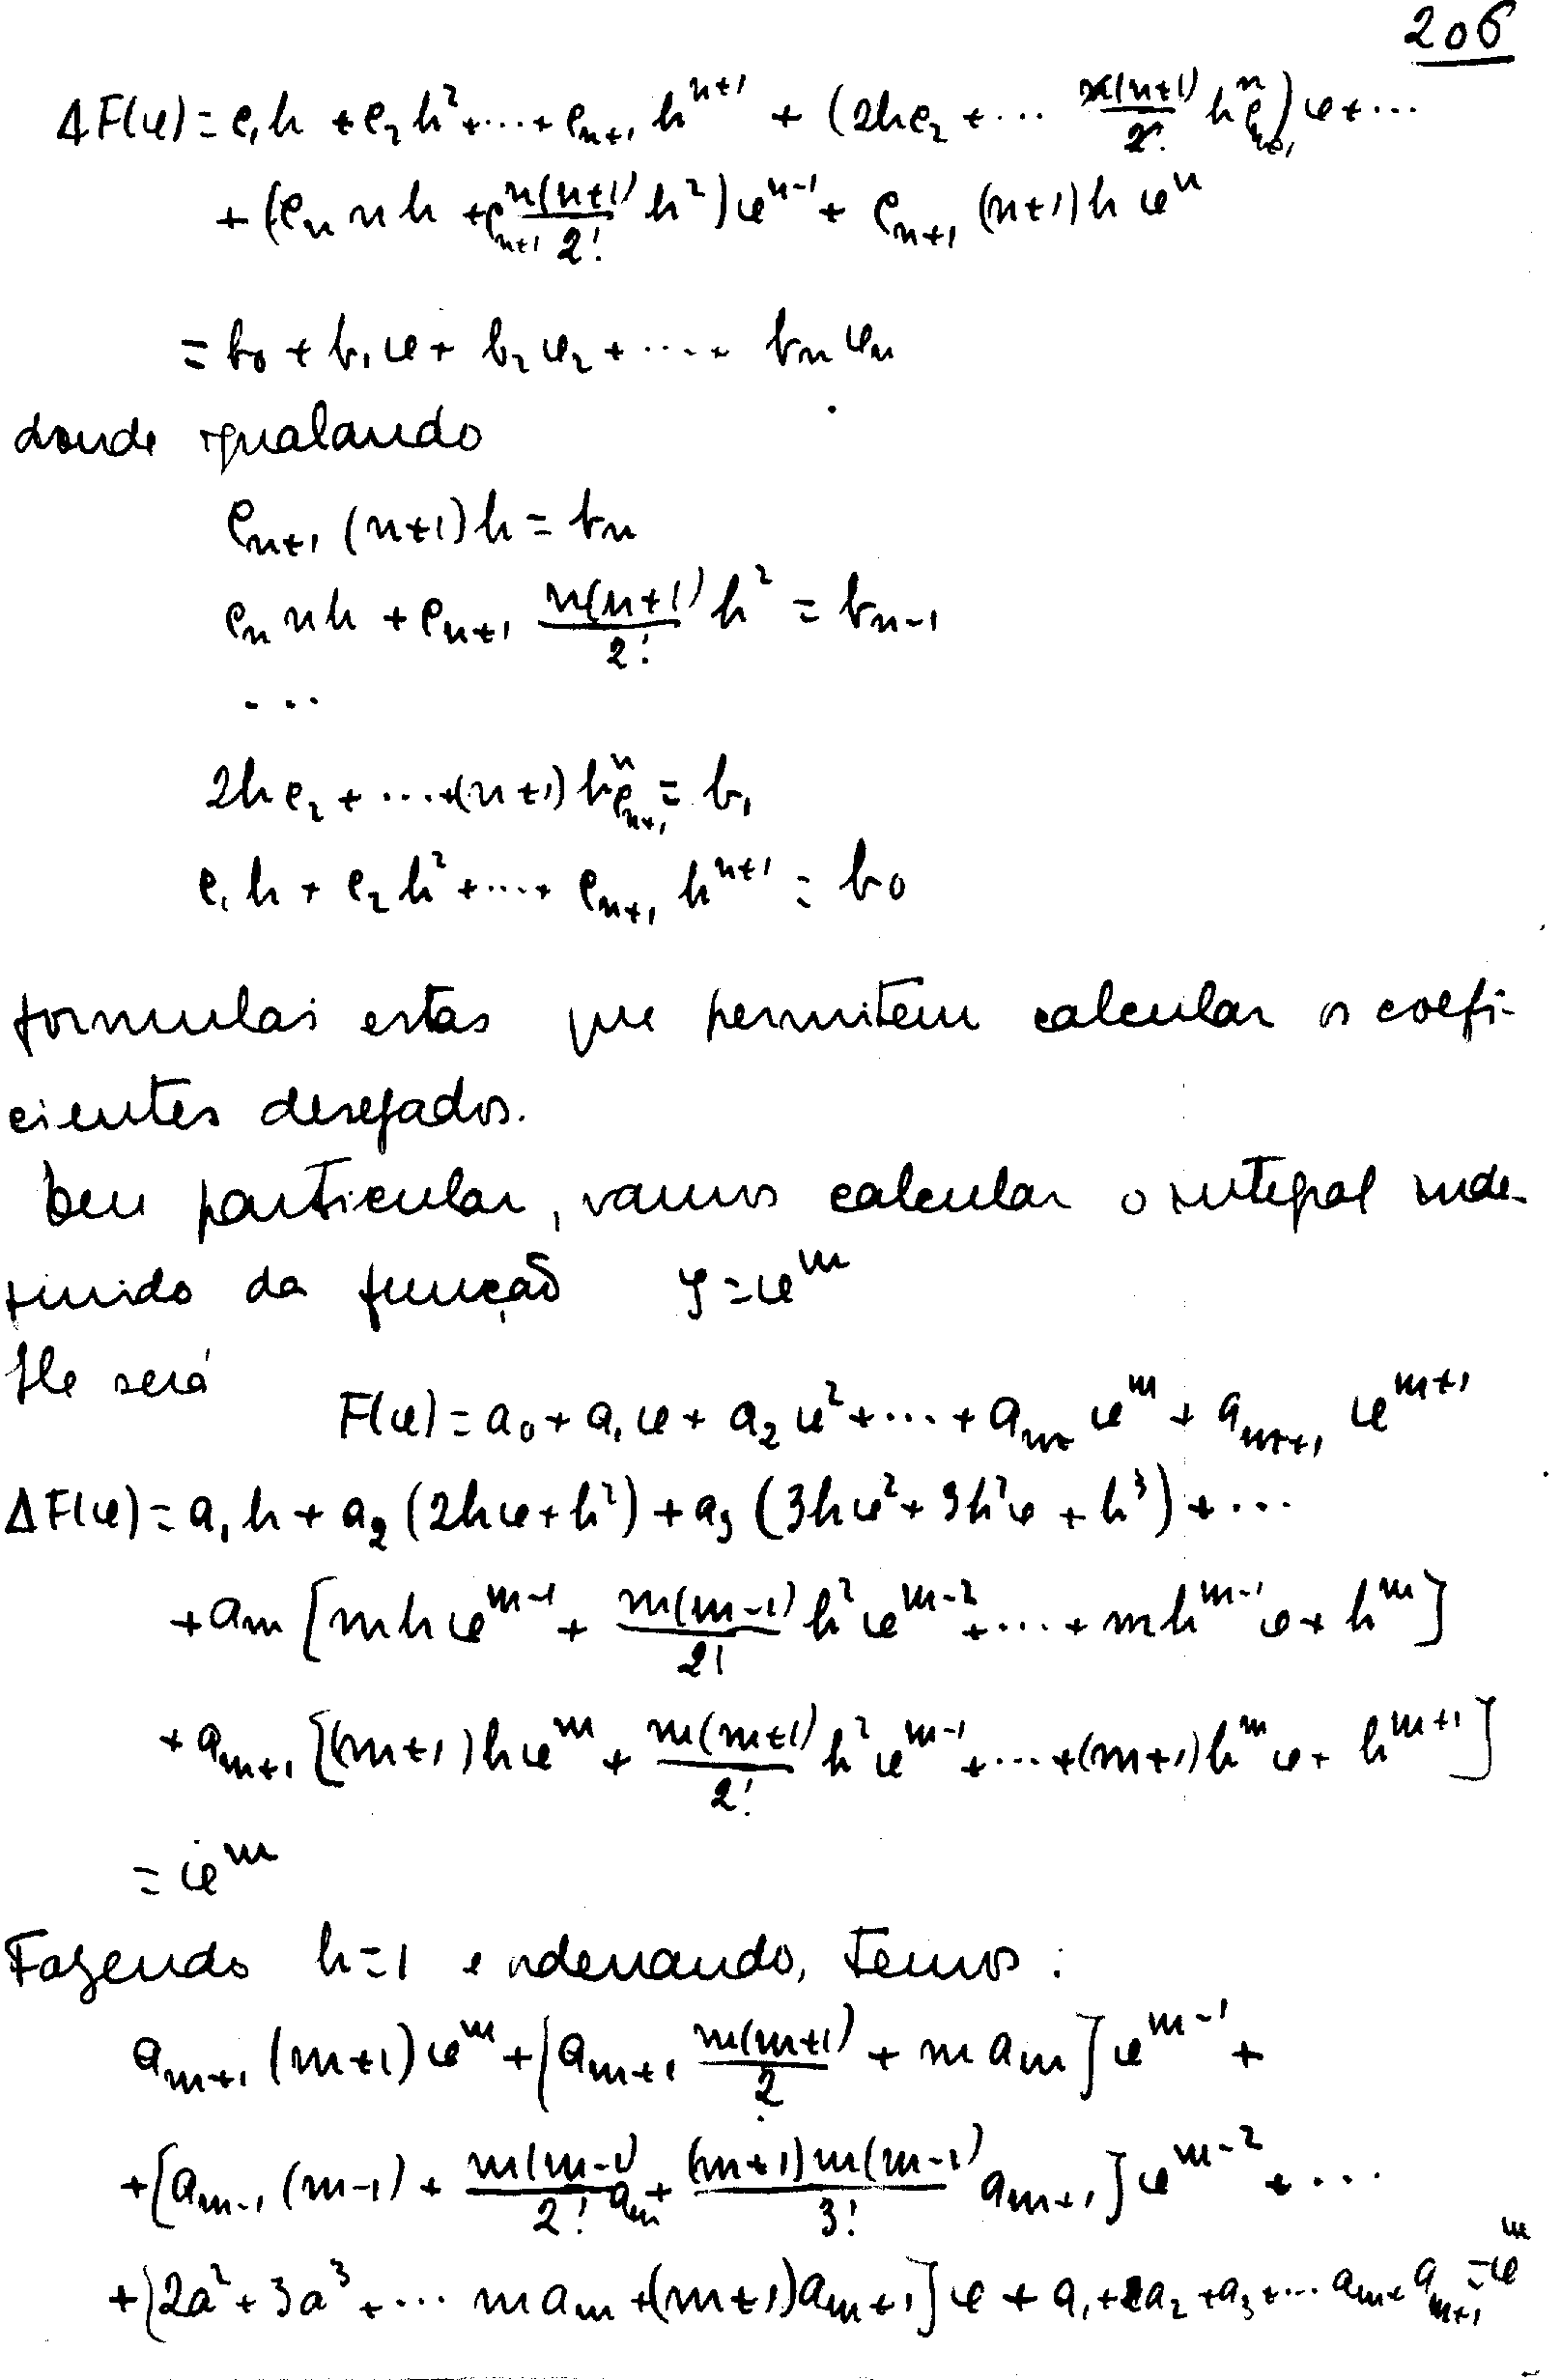 206
ΔF(x) = c₁h + c₂h² + ... + cₙ₊₁ hⁿ⁺¹ + (2hc₂ + ... (n+1) hⁿ cₙ₊₁) x + ...
+ (cₙ n h + cₙ₊₁ n(n+1)/2! h²) xⁿ⁻¹ + cₙ₊₁ (n+1) h xⁿ
= b₀ + b₁x + b₂x₂ + ..... bₙxₙ
donde igualando
cₙ₊₁ (n+1) h = bₙ
cₙ n h + cₙ₊₁ n(n+1)/2! h² = bₙ₋₁
...
2h c₂ + ... + (n+1) hⁿ cₙ₊₁ = b₁
c₁h + c₂h² + ... + cₙ₊₁ hⁿ⁺¹ = b₀
formulas estas que permitem calcular os coefi-
cientes desejados.
Em particular, vamos calcular o integral inde-
finido da função y = xᵐ
Ele será
F(x) = a₀ + a₁x + a₂x² + ... + aₘ xᵐ + aₘ₊₁ xᵐ⁺¹
ΔF(x) = a₁h + a₂ (2hx + h²) + a₃ (3hx² + 3h²x + h³) + ...
+ aₘ [m h xᵐ⁻¹ + m(m-1)/2! h² xᵐ⁻² + ... + m hᵐ⁻¹ x + hᵐ]
+ aₘ₊₁ [(m+1) h xᵐ + m(m+1)/2! h² xᵐ⁻¹ + ... + (m+1) hᵐ x + hᵐ⁺¹]
= xᵐ
Fazendo h=1 e ordenando, temos:
aₘ₊₁ (m+1) xᵐ + [aₘ₊₁ m(m+1)/2 + m aₘ] xᵐ⁻¹ +
+ [aₘ₋₁ (m-1) + m(m-1)/2! aₘ + (m+1)m(m-1)/3! aₘ₊₁] xᵐ⁻² + ...
+ [2a² + 3a³ + ... m aₘ + (m+1)aₘ₊₁] x + a₁ + a₂ + a₃ + ... aₘ + aₘ₊₁ = xᵐ